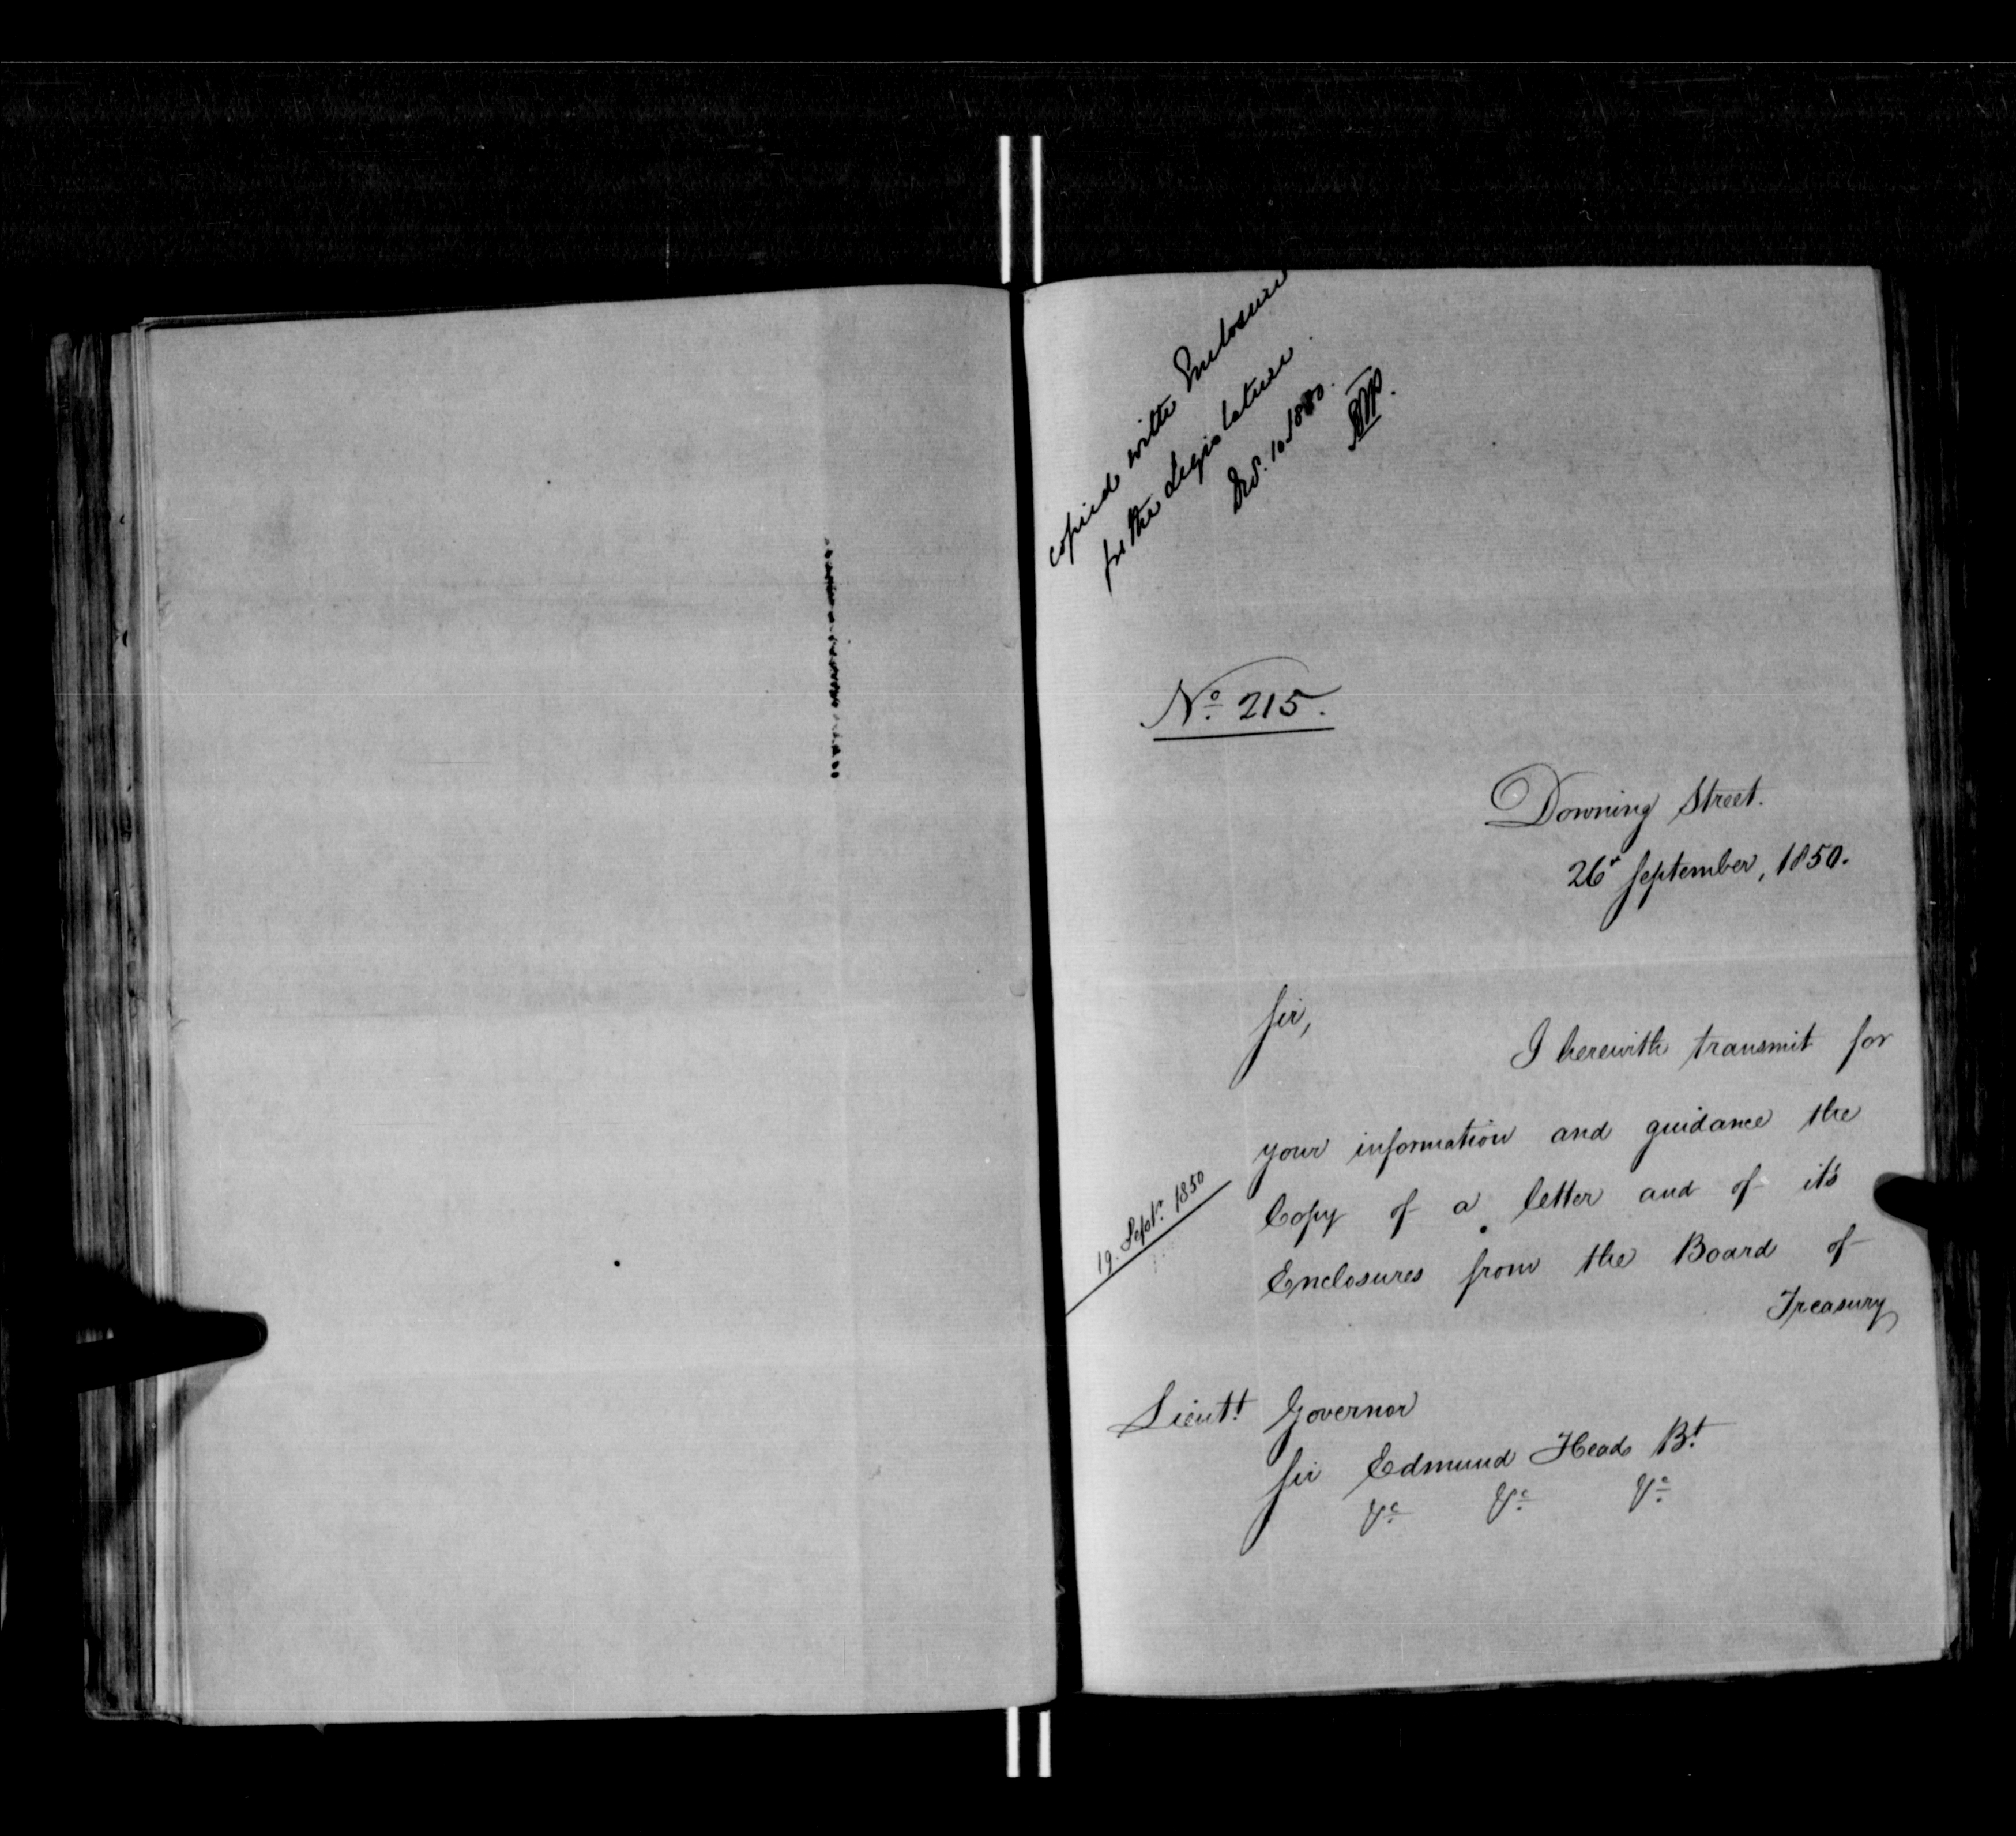 copied with Enclosure
for the Legislature.
No. 215.
Downing Street.
26th September, 1850.
Sir,
I herewith transmit for
your information and guidance the
19. Septr. 1850
Copy of a letter and of it's
Enclosures from the Board of
Treasury
Lieutt. Governor
Sir Edmund Head Bt.
&c. &c. &c.